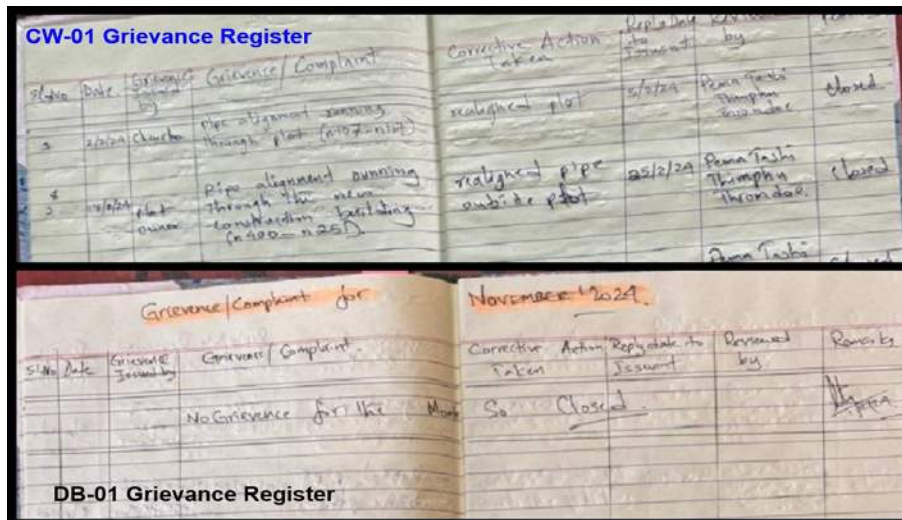 CW-01 Grievance Register
Sl.No Date. Grievence Issued by Grievance/Complaint Corrective Action Taken Reply Date to Issuent by
2/2/24 pipe alignment running through plot realigned plot 5/2/24 Pema Tashi Thimphu Thromdae closed
plot owner pipe alignment running through the new construction realigned pipe outside plot 25/2/24 Pema Tashi Thimphu Thromdae. closed
Pema Tashi
Grievence/Complaint for November '2024.
Sl.No Date Grievence Issued by Grievence/Complaint. Corrective Action Taken Reply date to Issuent Reviewed by Remarks
No Grievence for the Month So Closed.
DB-01 Grievance Register